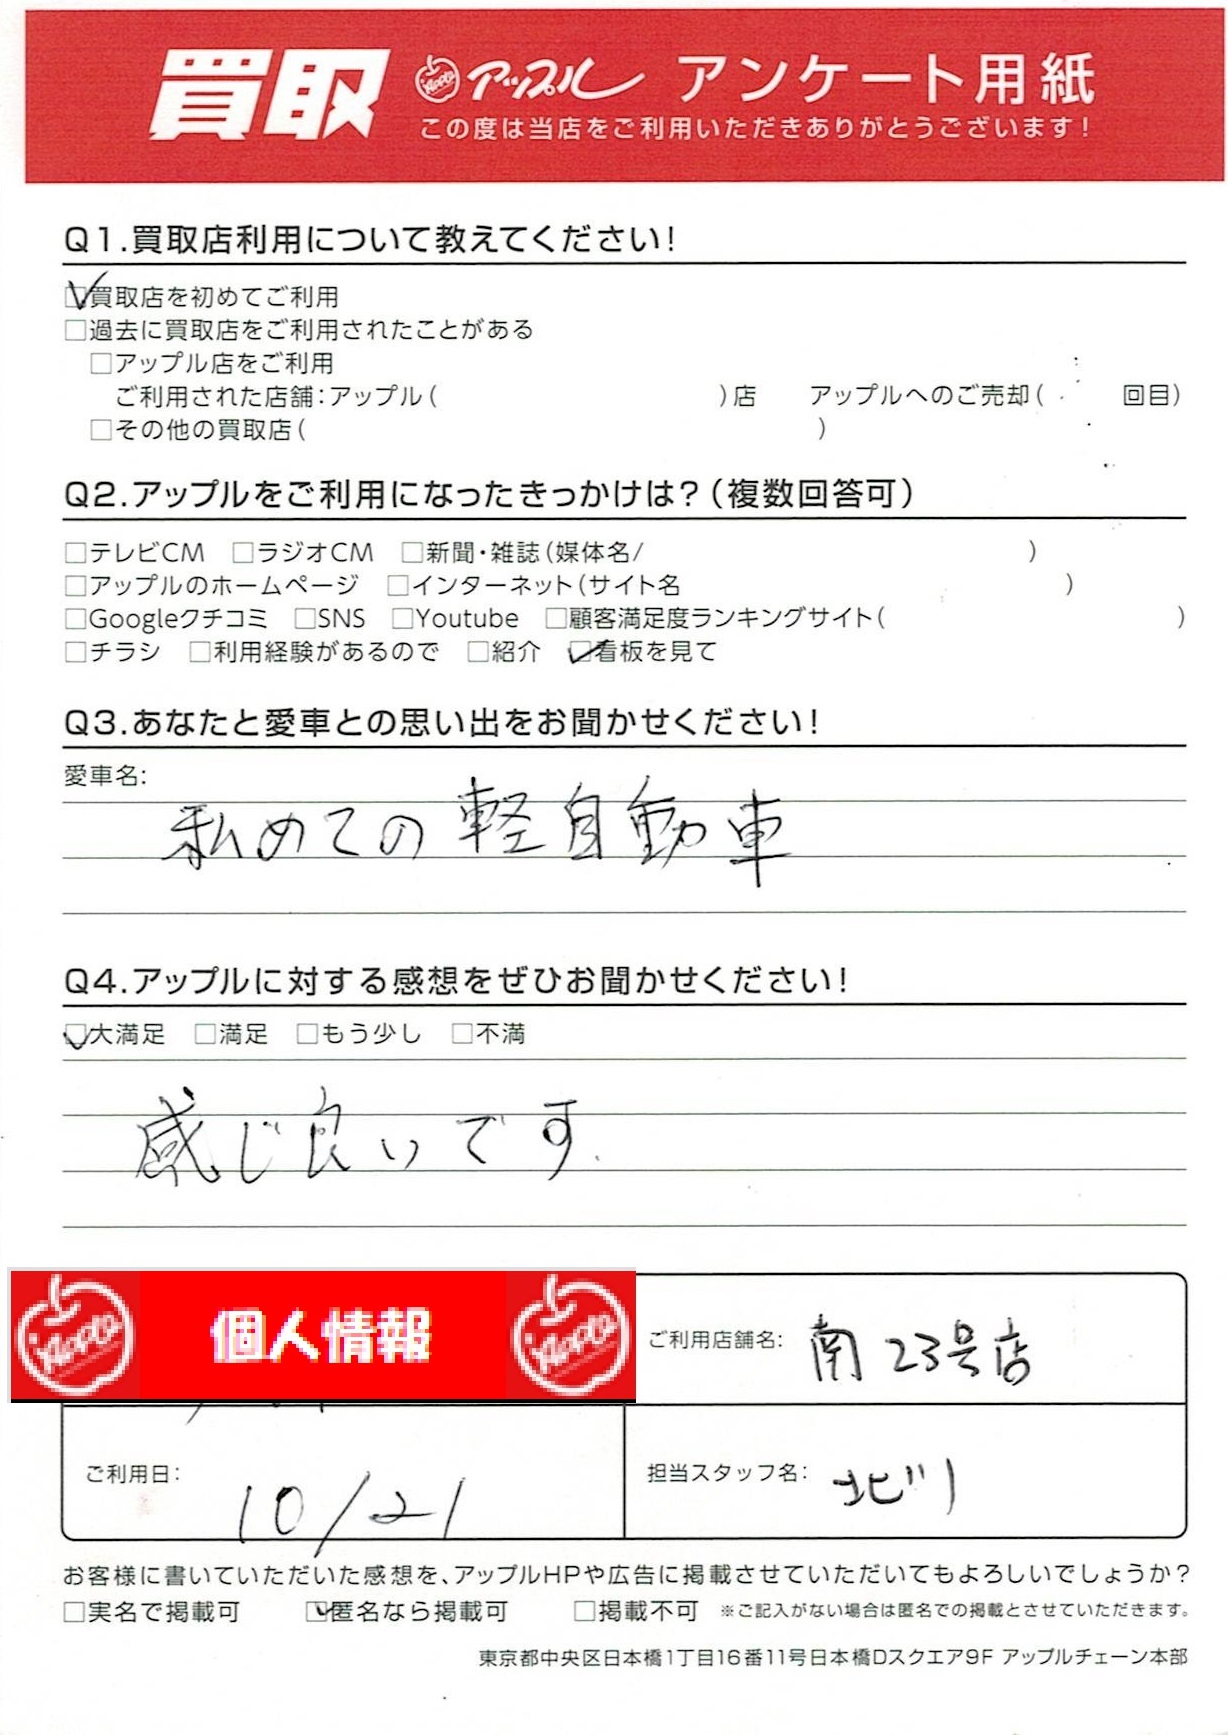 買取 Apple アップル アンケート用紙
この度は当店をご利用いただきありがとうございます!
Q1.買取店利用について教えてください!
☑買取店を初めてご利用
□過去に買取店をご利用されたことがある
□アップル店をご利用
ご利用された店舗:アップル( )店 アップルへのご売却( 回目)
□その他の買取店( )
Q2.アップルをご利用になったきっかけは?(複数回答可)
□テレビCM □ラジオCM □新聞・雑誌(媒体名/ )
□アップルのホームページ □インターネット(サイト名 )
□Googleクチコミ □SNS □Youtube □顧客満足度ランキングサイト( )
□チラシ □利用経験があるので □紹介 ☑看板を見て
Q3.あなたと愛車との思い出をお聞かせください!
愛車名:
私めての軽自動車
Q4.アップルに対する感想をぜひお聞かせください!
☑大満足 □満足 □もう少し □不満
感じ良いです.
Apple 個人情報 Apple
ご利用店舗名: 南23号店
ご利用日: 10/21
担当スタッフ名: 北川
お客様に書いていただいた感想を、アップルHPや広告に掲載させていただいてもよろしいでしょうか?
□実名で掲載可 ☑匿名なら掲載可 □掲載不可 ※ご記入がない場合は匿名での掲載とさせていただきます。
東京都中央区日本橋1丁目16番11号日本橋Dスクエア9F アップルチェーン本部